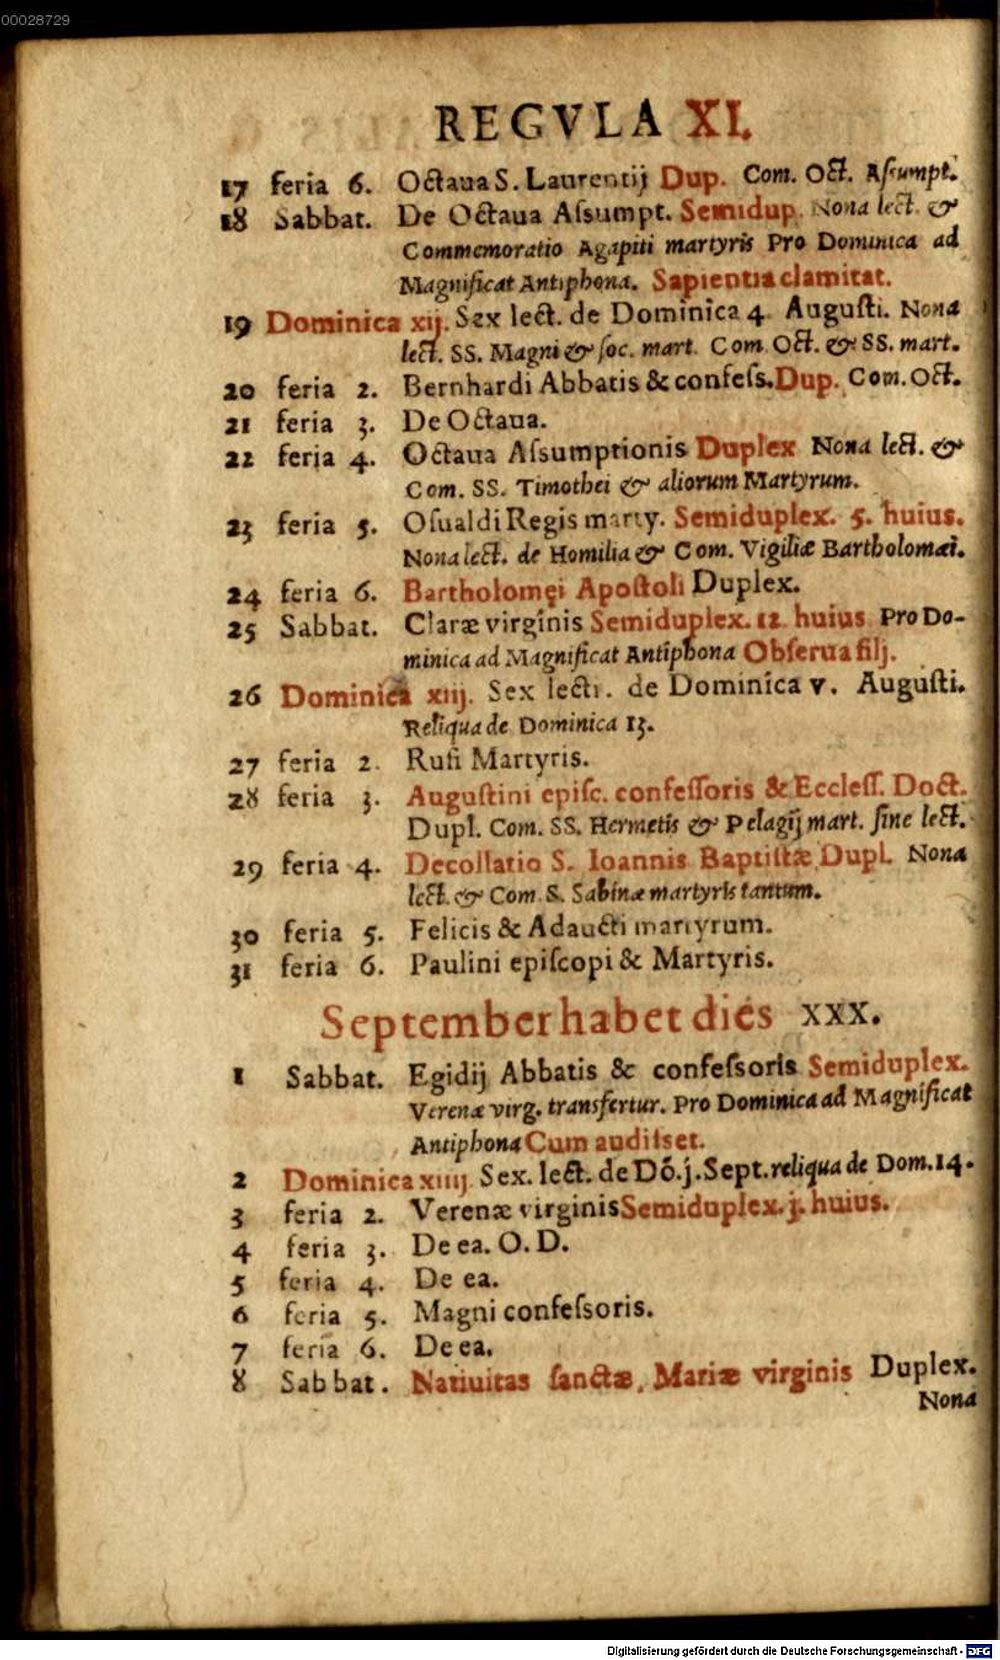 00028729
REGVLA XI.
17 feria 6. Octaua S. Laurentij Dup. Com. Oct. Aſsumpt.
18 Sabbat. De Octaua Aſsumpt. Semidup. Nona lect. &
Commemoratio Agapiti martyris Pro Dominica ad
Magnificat Antiphona. Sapientia clamitat.
19 Dominica xij. Sex lect. de Dominica 4 Auguſti. Nona
lect. SS. Magni & ſoc. mart. Com. Oct. & SS. mart.
20 feria 2. Bernhardi Abbatis & confeſs. Dup. Com. Oct.
21 feria 3. De Octaua.
22 feria 4. Octaua Aſsumptionis Duplex Nona lect. &
Com. SS. Timothei & aliorum Martyrum.
23 feria 5. Oſualdi Regis marty. Semiduplex. 5. huius.
Nona lect. de Homilia & Com. Vigiliæ Bartholomæi.
24 feria 6. Bartholomęi Apoſtoli Duplex.
25 Sabbat. Claræ virginis Semiduplex. 12 huius Pro Do-
minica ad Magnificat Antiphona Obſerua filj.
26 Dominica xiij. Sex lecti. de Dominica v. Auguſti.
Reliqua de Dominica 13.
27 feria 2. Rufi Martyris.
28 feria 3. Auguſtini epiſc. confeſſoris & Eccleſſ. Doct.
Dupl. Com. SS. Hermetis & Pelagij mart. ſine lect.
29 feria 4. Decollatio S. Ioannis Baptiſtæ Dupl. Nona
lect. & Com. S. Sabinæ martyris tantum.
30 feria 5. Felicis & Adaucti martyrum.
31 feria 6. Paulini epiſcopi & Martyris.
September habet dies XXX.
1 Sabbat. Egidij Abbatis & confeſsoris Semiduplex.
Verenæ virg. transfertur. Pro Dominica ad Magnificat
Antiphona Cum audiſset.
2 Dominica xiiij. Sex. lect. de Dō. j. Sept. reliqua de Dom. 14.
3 feria 2. Verenæ virginis Semiduplex. j. huius.
4 feria 3. De ea. O. D.
5 feria 4. De ea.
6 feria 5. Magni confeſsoris.
7 feria 6. De ea.
8 Sabbat. Natiuitas ſanctæ, Mariæ virginis Duplex.
Nona
Digitalisierung gefördert durch die Deutsche Forschungsgemeinschaft - DFG